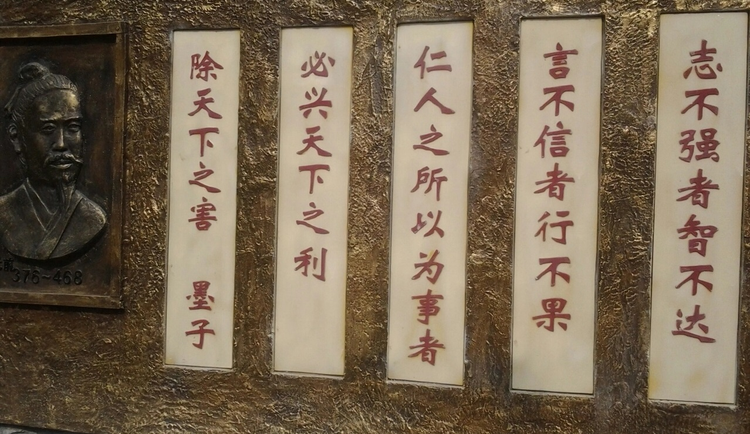 志不强者智不达
言不信者行不果
仁人之所以为事者
必兴天下之利
除天下之害 墨子
376~468